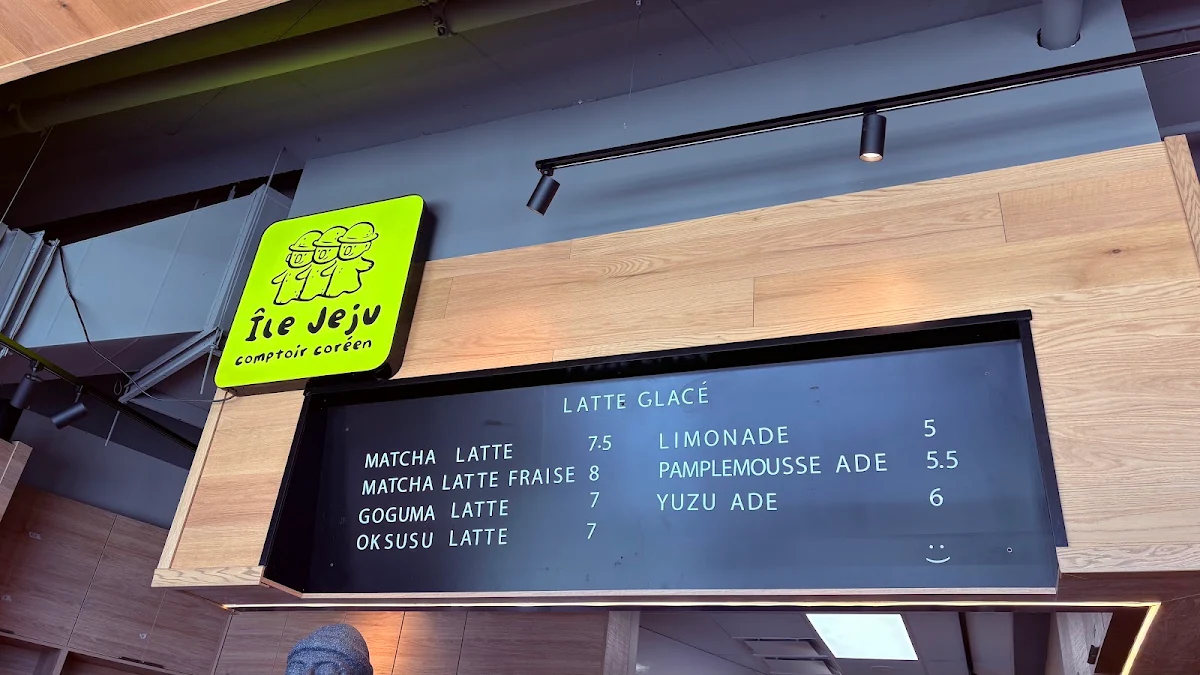 Île Jeju
comptoir coréen
LATTE GLACÉ
MATCHA LATTE 7.5
MATCHA LATTE FRAISE 8
GOGUMA LATTE 7
OKSUSU LATTE 7
LIMONADE 5
PAMPLEMOUSSE ADE 5.5
YUZU ADE 6